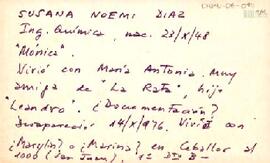 SUSANA NOEMI DIAZ
Ing. Química, nac. 23/X/48
"Mónica".
Vivió con María Antonia. Muy
amiga de "La Rata", hijo
"Leandro". (¿Documentación?
Desapareció 14/X/976. Vivía con
¿Marylín? o ¿Marina? en Ceballos al
1000 (San Juan), 12 Dto B